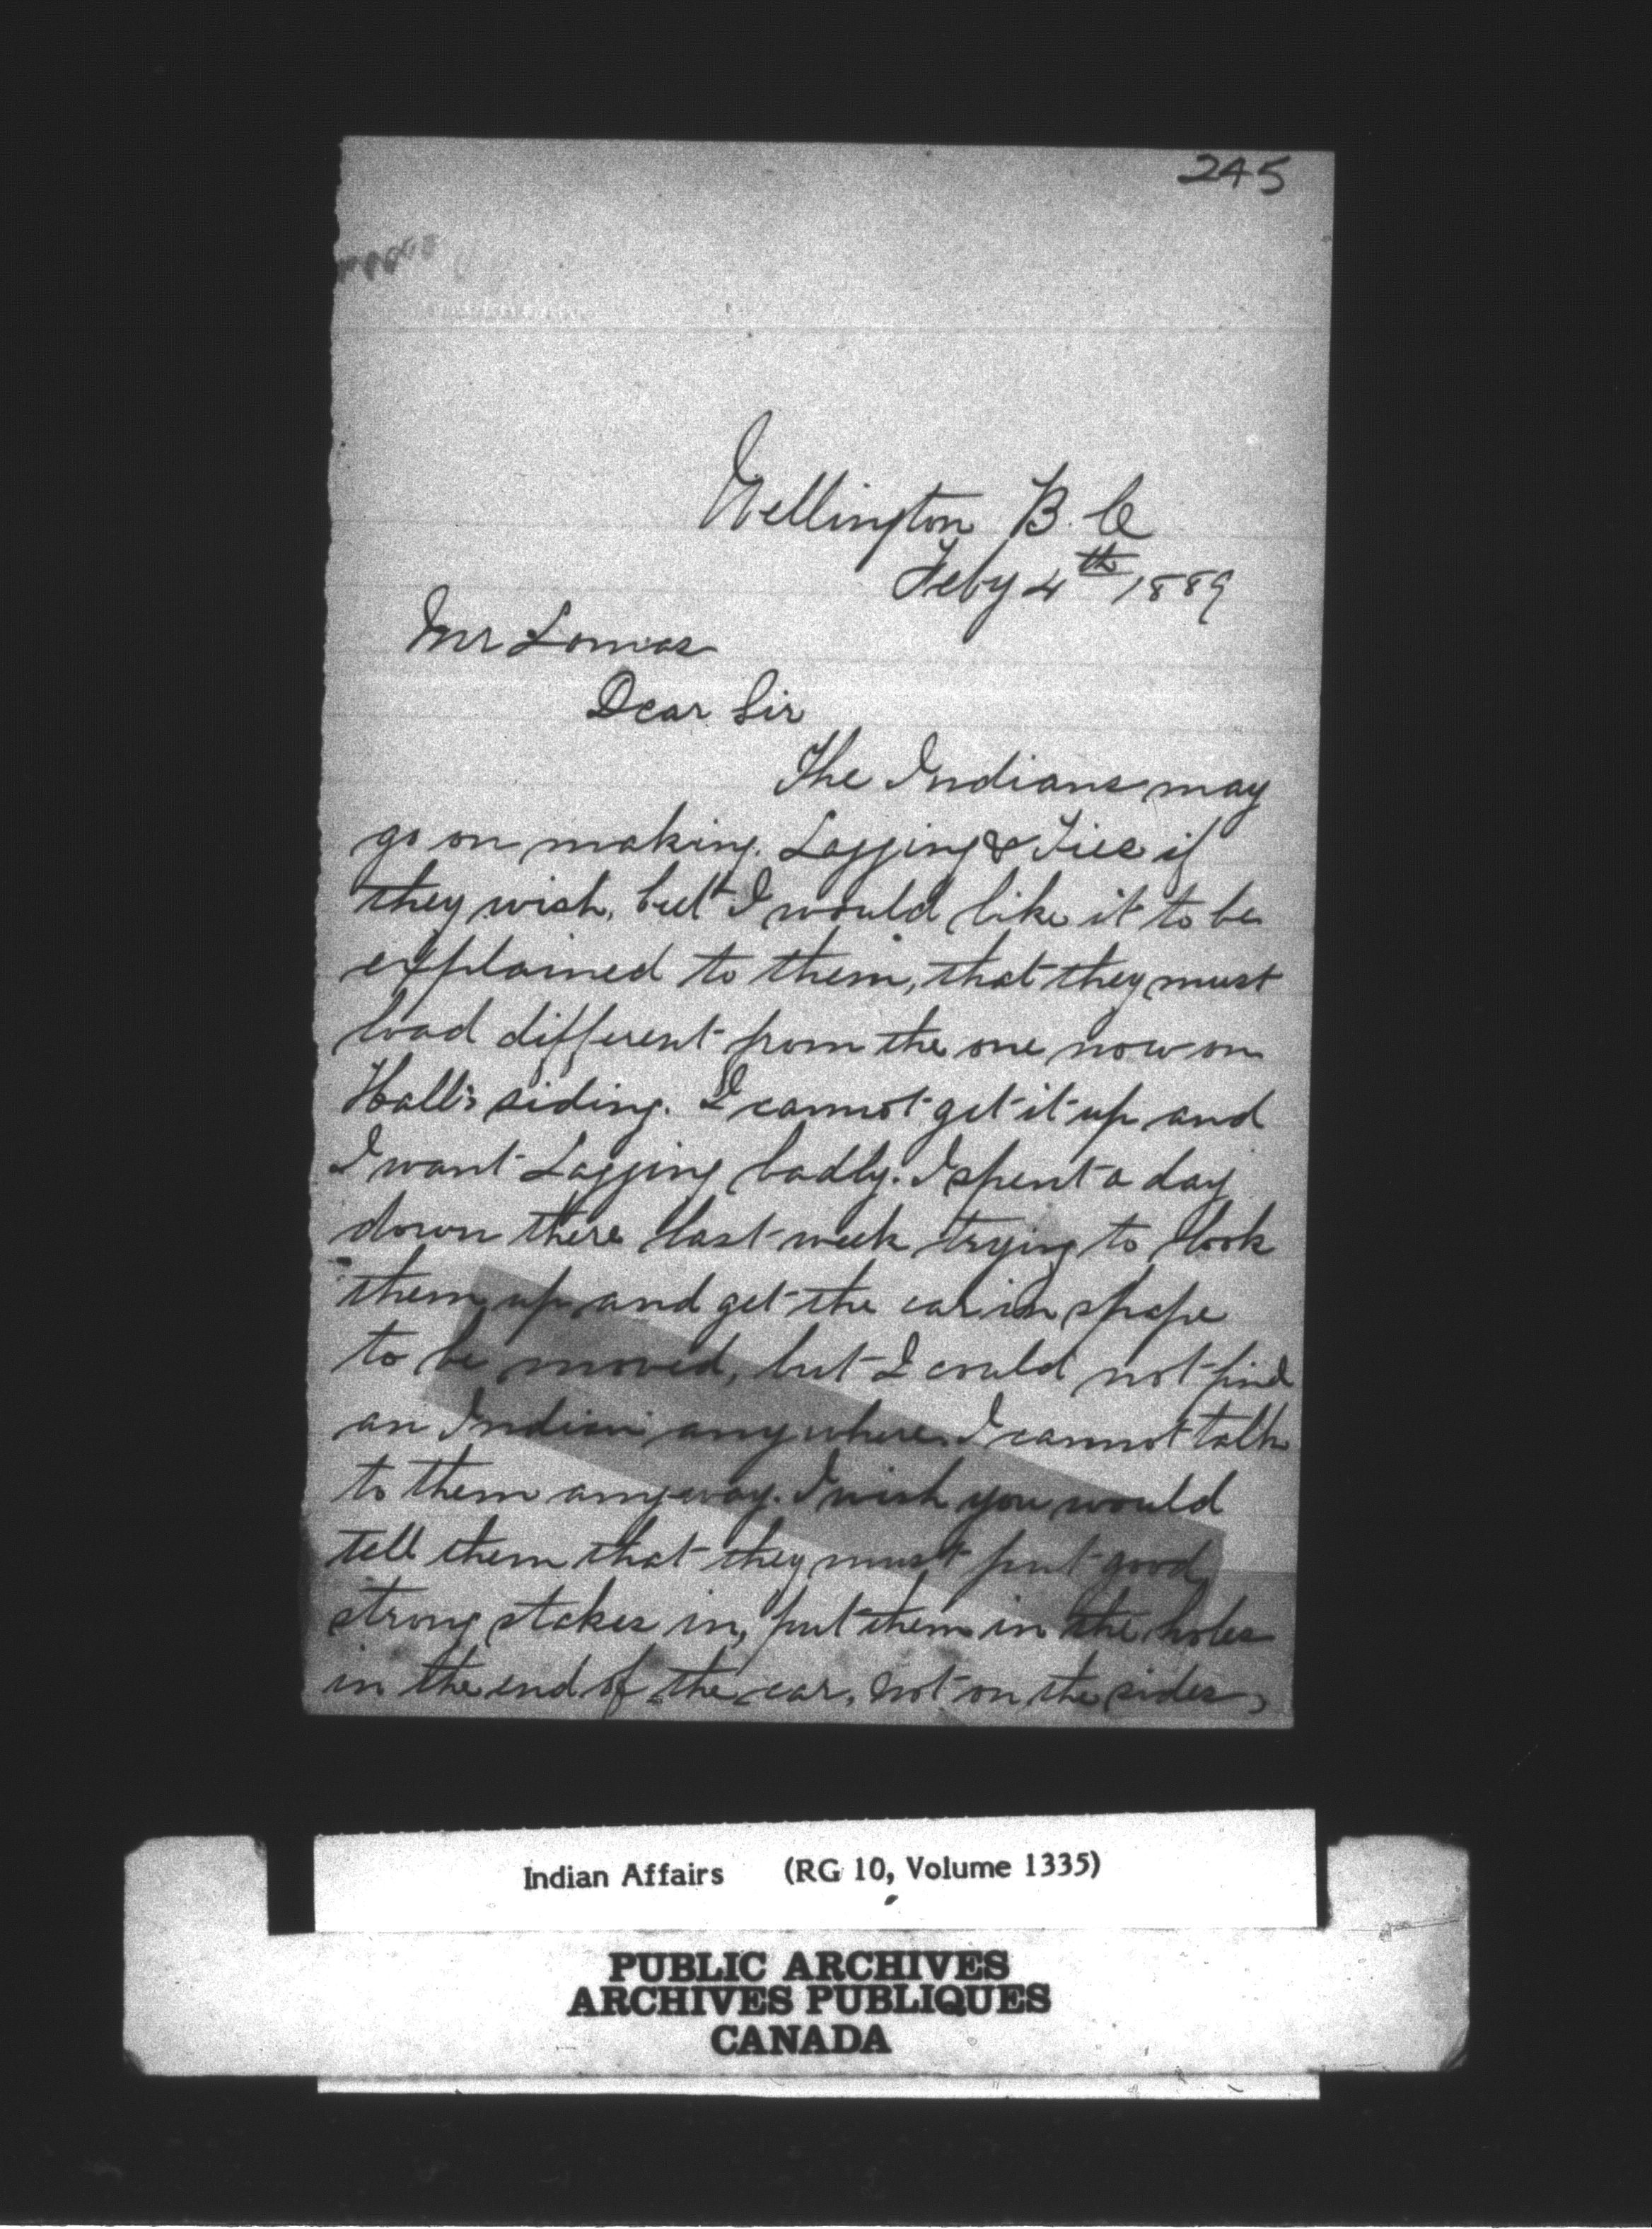 245
Wellington B. C
Feby 4th 1889
Mr Lomas
Dear Sir
The Indians may
go on making. Lagging & Ties if
they wish, but I would like it to be
explained to them, that they must
load different from the one now on
Hall's siding. I cannot get it up and
I want Lagging badly. I spent a day
down there last week trying to look
them up and get the car in shape
to be moved, but I could not find
an Indian anywhere. I cannot talk
to them anyway. I wish you would
tell them that they must put good
strong stakes in, put them in the holes
in the end of the car, not on the sides,
Indian Affairs (RG 10, Volume 1335)
PUBLIC ARCHIVES
ARCHIVES PUBLIQUES
CANADA